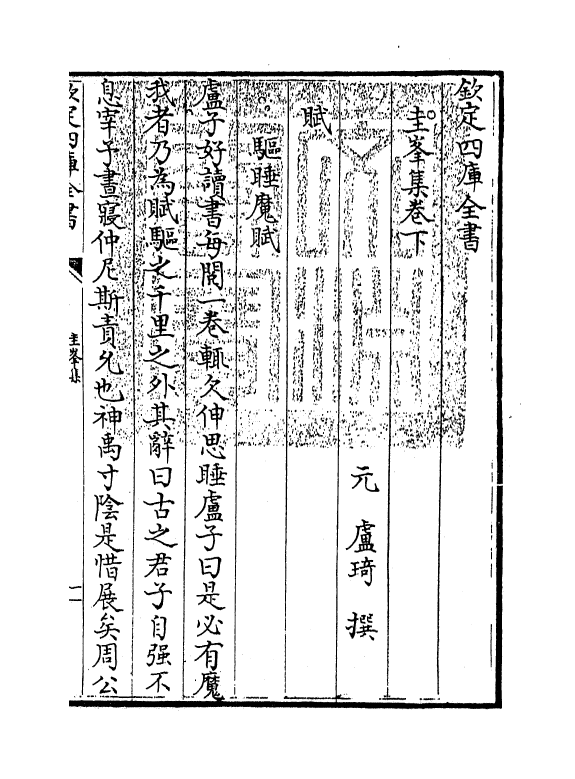 欽定四庫全書
圭峯集卷下
元 盧琦 撰
賦
驅睡魔賦
盧子好讀書每閱一卷輒欠伸思睡盧子曰是必有魔
我者乃為賦驅之千里之外其辭曰古之君子自强不
息宰予晝寢仲尼斯責允也神禹寸陰是惜展矣周公
欽定四庫全書
圭峯集
一